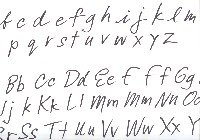 b c d e f g h i j k l m
p q r s t u v w x y z
Bb Cc Dd Ee Ff Gg
j k Kk Ll Mm Mm Nn Oo
Rr Ss Tt Uu Vv Ww Xx Yy